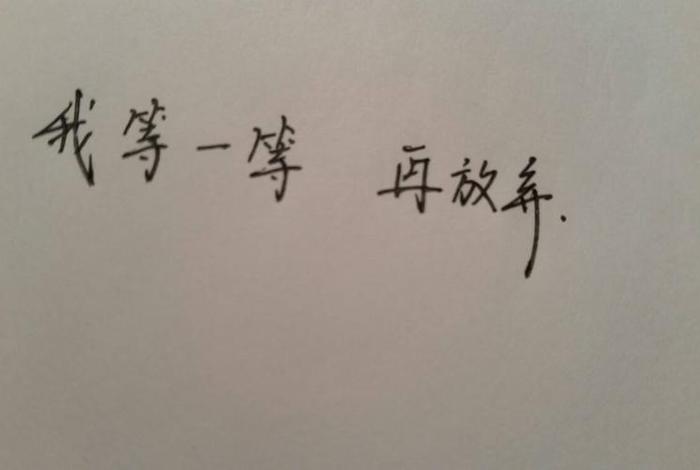 我等一等 再放弃.